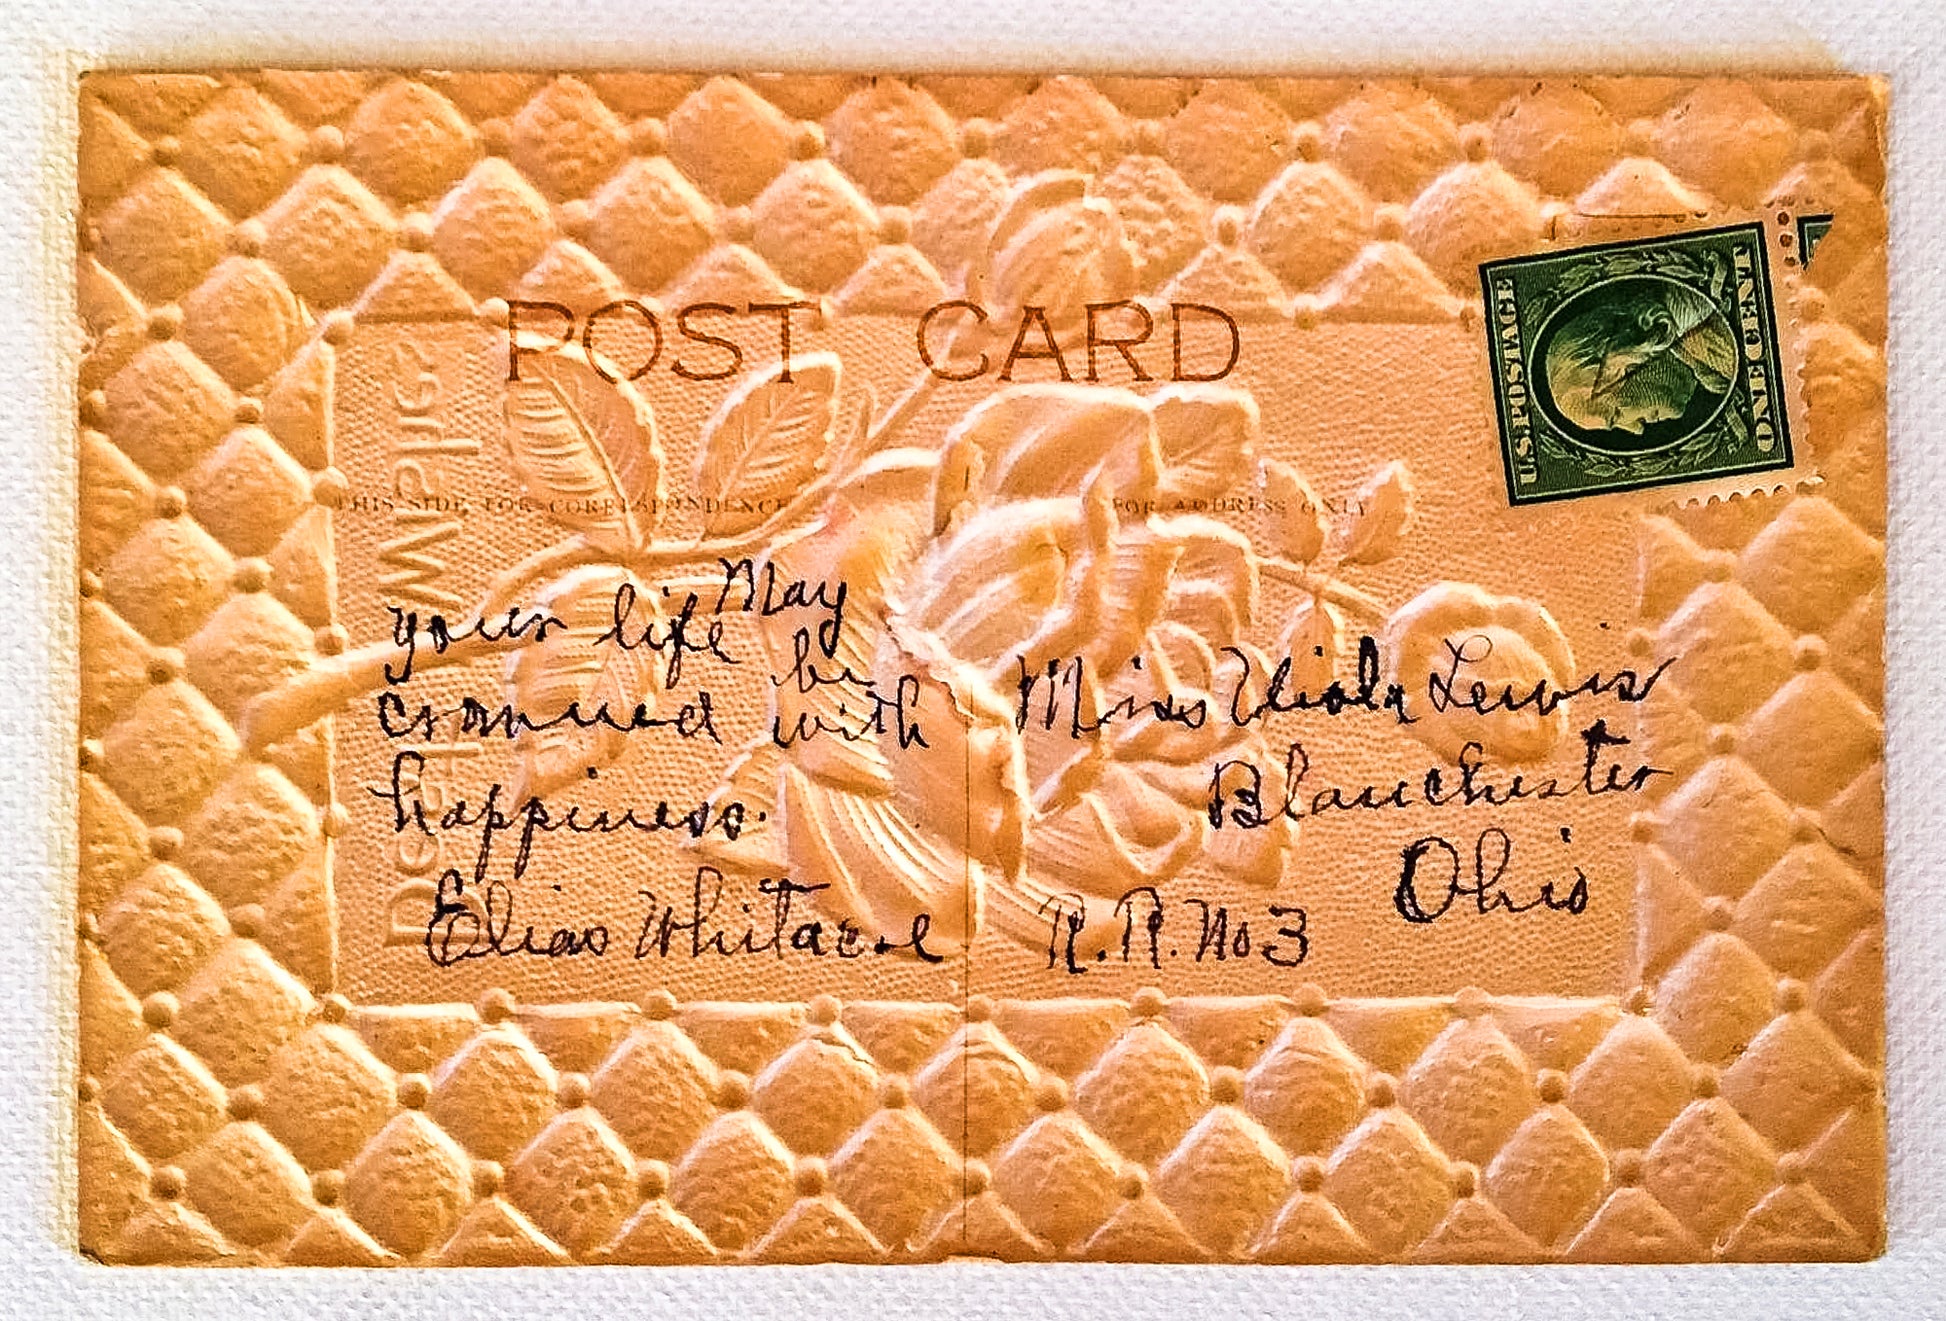 POST CARD
U.S.POSTAGE
ONE CENT
THIS SIDE FOR CORRESPONDENCE
FOR ADDRESS ONLY
May
your life be
crowned with
happiness.
Elias Whitacre
Miss Viola Lewis
Blanchester
Ohio
R.R. No 3